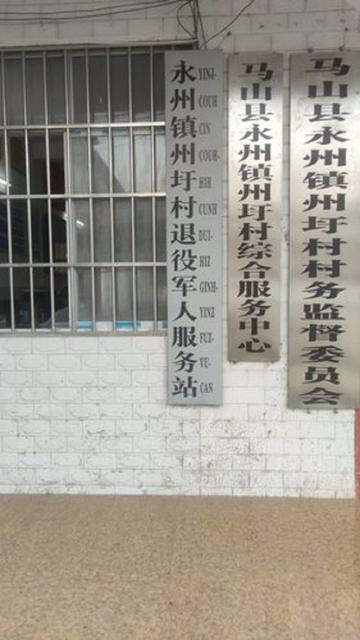 永州镇州圩村退役军人服务站
YINJ-COUH CIN COUH-HIH CUNH DUI-HIZ GINH-YINZ FUZ-VU-CAN
马山县永州镇州圩村综合服务中心
马山县永州镇州圩村村务监督委员会